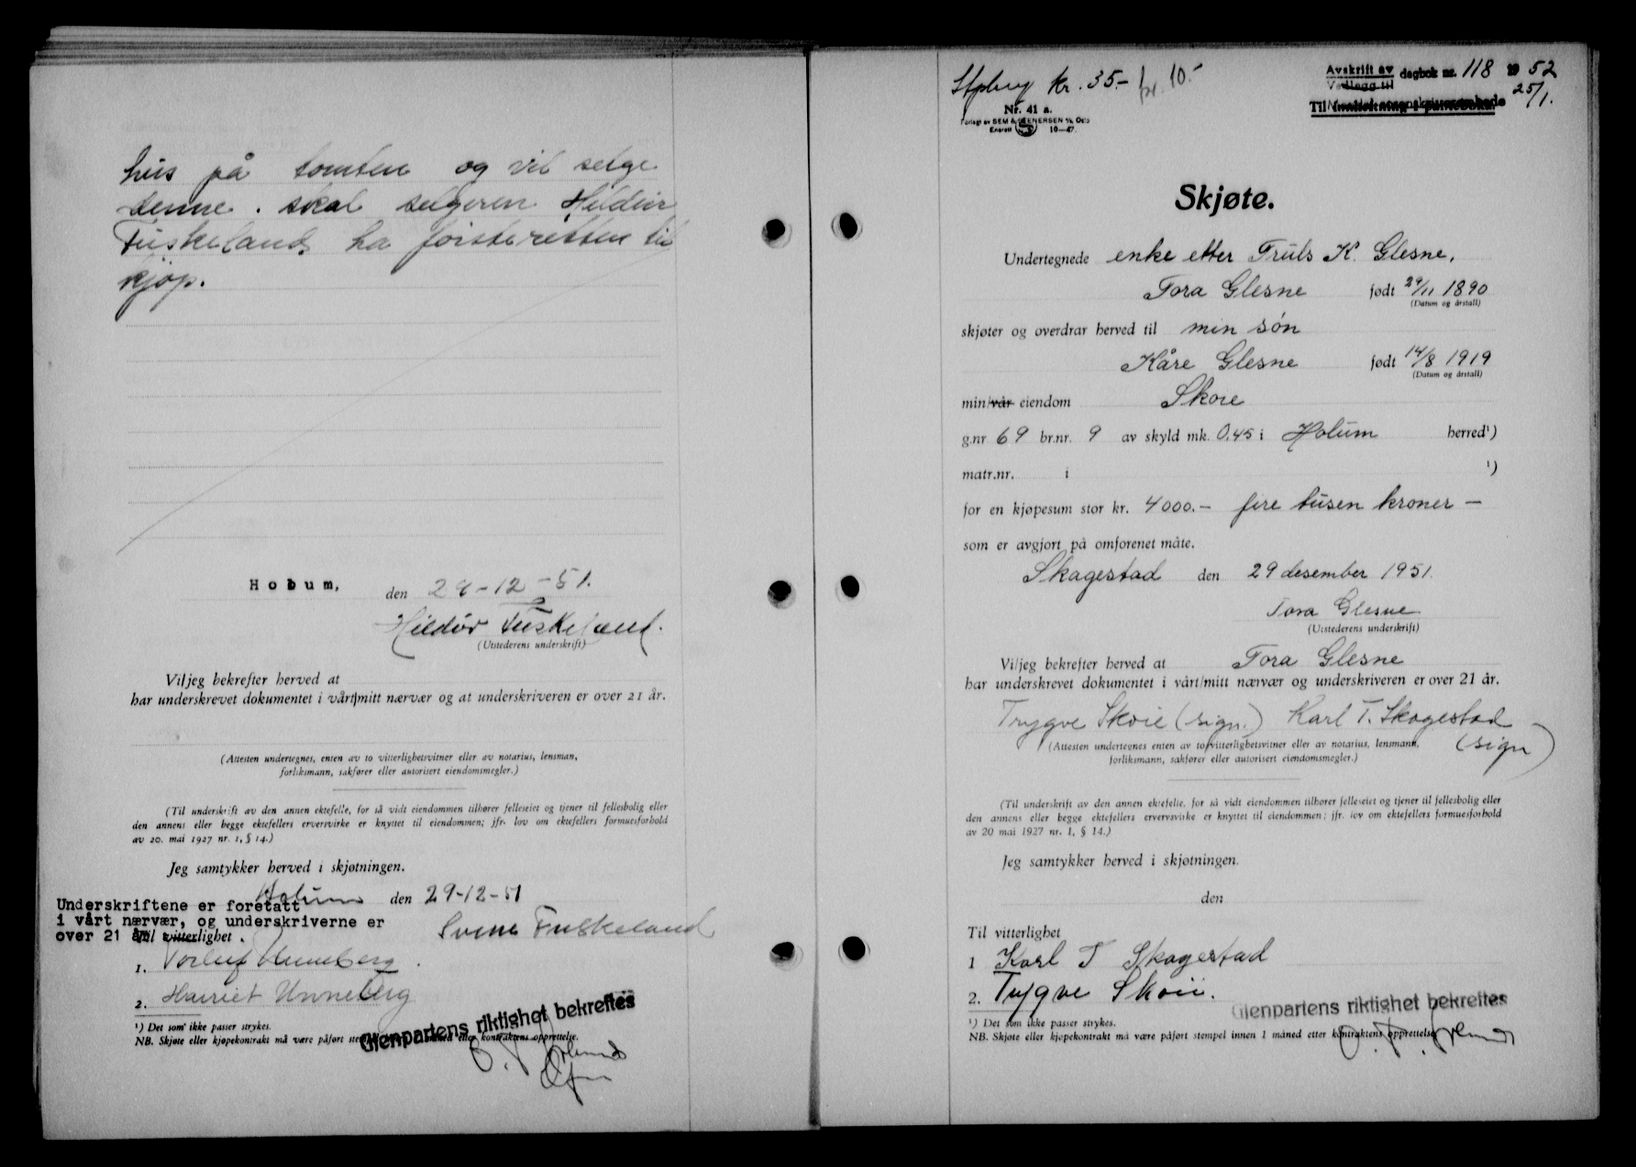 hus på tomten og vil selge
denne. skal selgeren Hildur
Fuskeland ha første retten til
kjøp.
Holum, den 29-12-51.
Hildur Fuskeland.
(Utstederens underskrift)
Vi/jeg bekrefter herved at
har underskrevet dokumentet i vårt/mitt nærvær og at underskriveren er over 21 år.
(Attesten undertegnes, enten av to vitterlighetsvitner eller av notarius, lensman,
forliksmann, sakfører eller autorisert eiendomsmegler.)
(Til underskrift av den annen ektefelle, for så vidt eiendommen tilhører felleseiet og tjener til fellesbolig eller
den annens eller begge ektefellers ervervsvirke er knyttet til eiendommen; jfr. lov om ektefellers formuesforhold
av 20. mai 1927 nr. 1, § 14.)
Jeg samtykker herved i skjøtningen.
Holum den 29-12-51
Underskriftene er foretatt
i vårt nærvær, og underskriverne er
over 21 år. Til vitterlighet.
Svene Fuskeland
1. Torleif Unneberg.
2. Harriet Unneberg
Gjenpartens riktighet bekreftes
¹) Det som ikke passer strykes.
NB. Skjøte eller kjøpekontrakt må være påført stempel innen 1 måned etter kontraktens opprettelse.
Stpberg kr. 35.- pr. 10.-
Avskrift av dagbok nr. 118 1952
Vedlegg til
25/1.
Nr. 41 a.
Forlagt av SEM & STENERSEN A/S Oslo
Enerett 10-47.
Skjøte.
Undertegnede enke etter Truls K. Glesne,
Tora Glesne født 29/11 1890
(Datum og årstall)
skjøter og overdrar herved til min søn
Kåre Glesne født 14/8 1919
(Datum og årstall)
min/vår eiendom Skoie
g.nr 69 br.nr. 9 av skyld mk. 0.45 i Holum herred¹)
matr.nr. i ¹)
for en kjøpesum stor kr. 4000.- fire tusen kroner -
som er avgjort på omforenet måte.
Skagestad den 29 desember 1951.
Tora Glesne
(Utstederens underskrift)
Vi/jeg bekrefter herved at Tora Glesne
har underskrevet dokumentet i vårt/mitt nærvær og underskriveren er over 21 år.
Trygve Skoie (sign.) Karl T. Skagestad
(sign)
(Attesten undertegnes enten av to vitterlighetsvitner eller av notarius, lensmann,
forliksmann, sakfører eller autorisert eiendomsmegler.)
(Til underskrift av den annen ektefelle, for så vidt eiendommen tilhører felleseiet og tjener til fellesbolig eller
den annens eller begge ektefellers ervervsvirke er knyttet til eiendommen; jfr. lov om ektefellers formuesforhold
av 20 mai 1927 nr. 1, § 14.)
Jeg samtykker herved i skjøtningen.
den
Til vitterlighet
1 Karl T Skagestad
2. Tygve Skoii.
Gjenpartens riktighet bekreftes
¹) Det som ikke passer strykes.
NB. Skjøte eller kjøpekontrakt må være påført stempel innen 1 måned etter kontraktens opprettelse